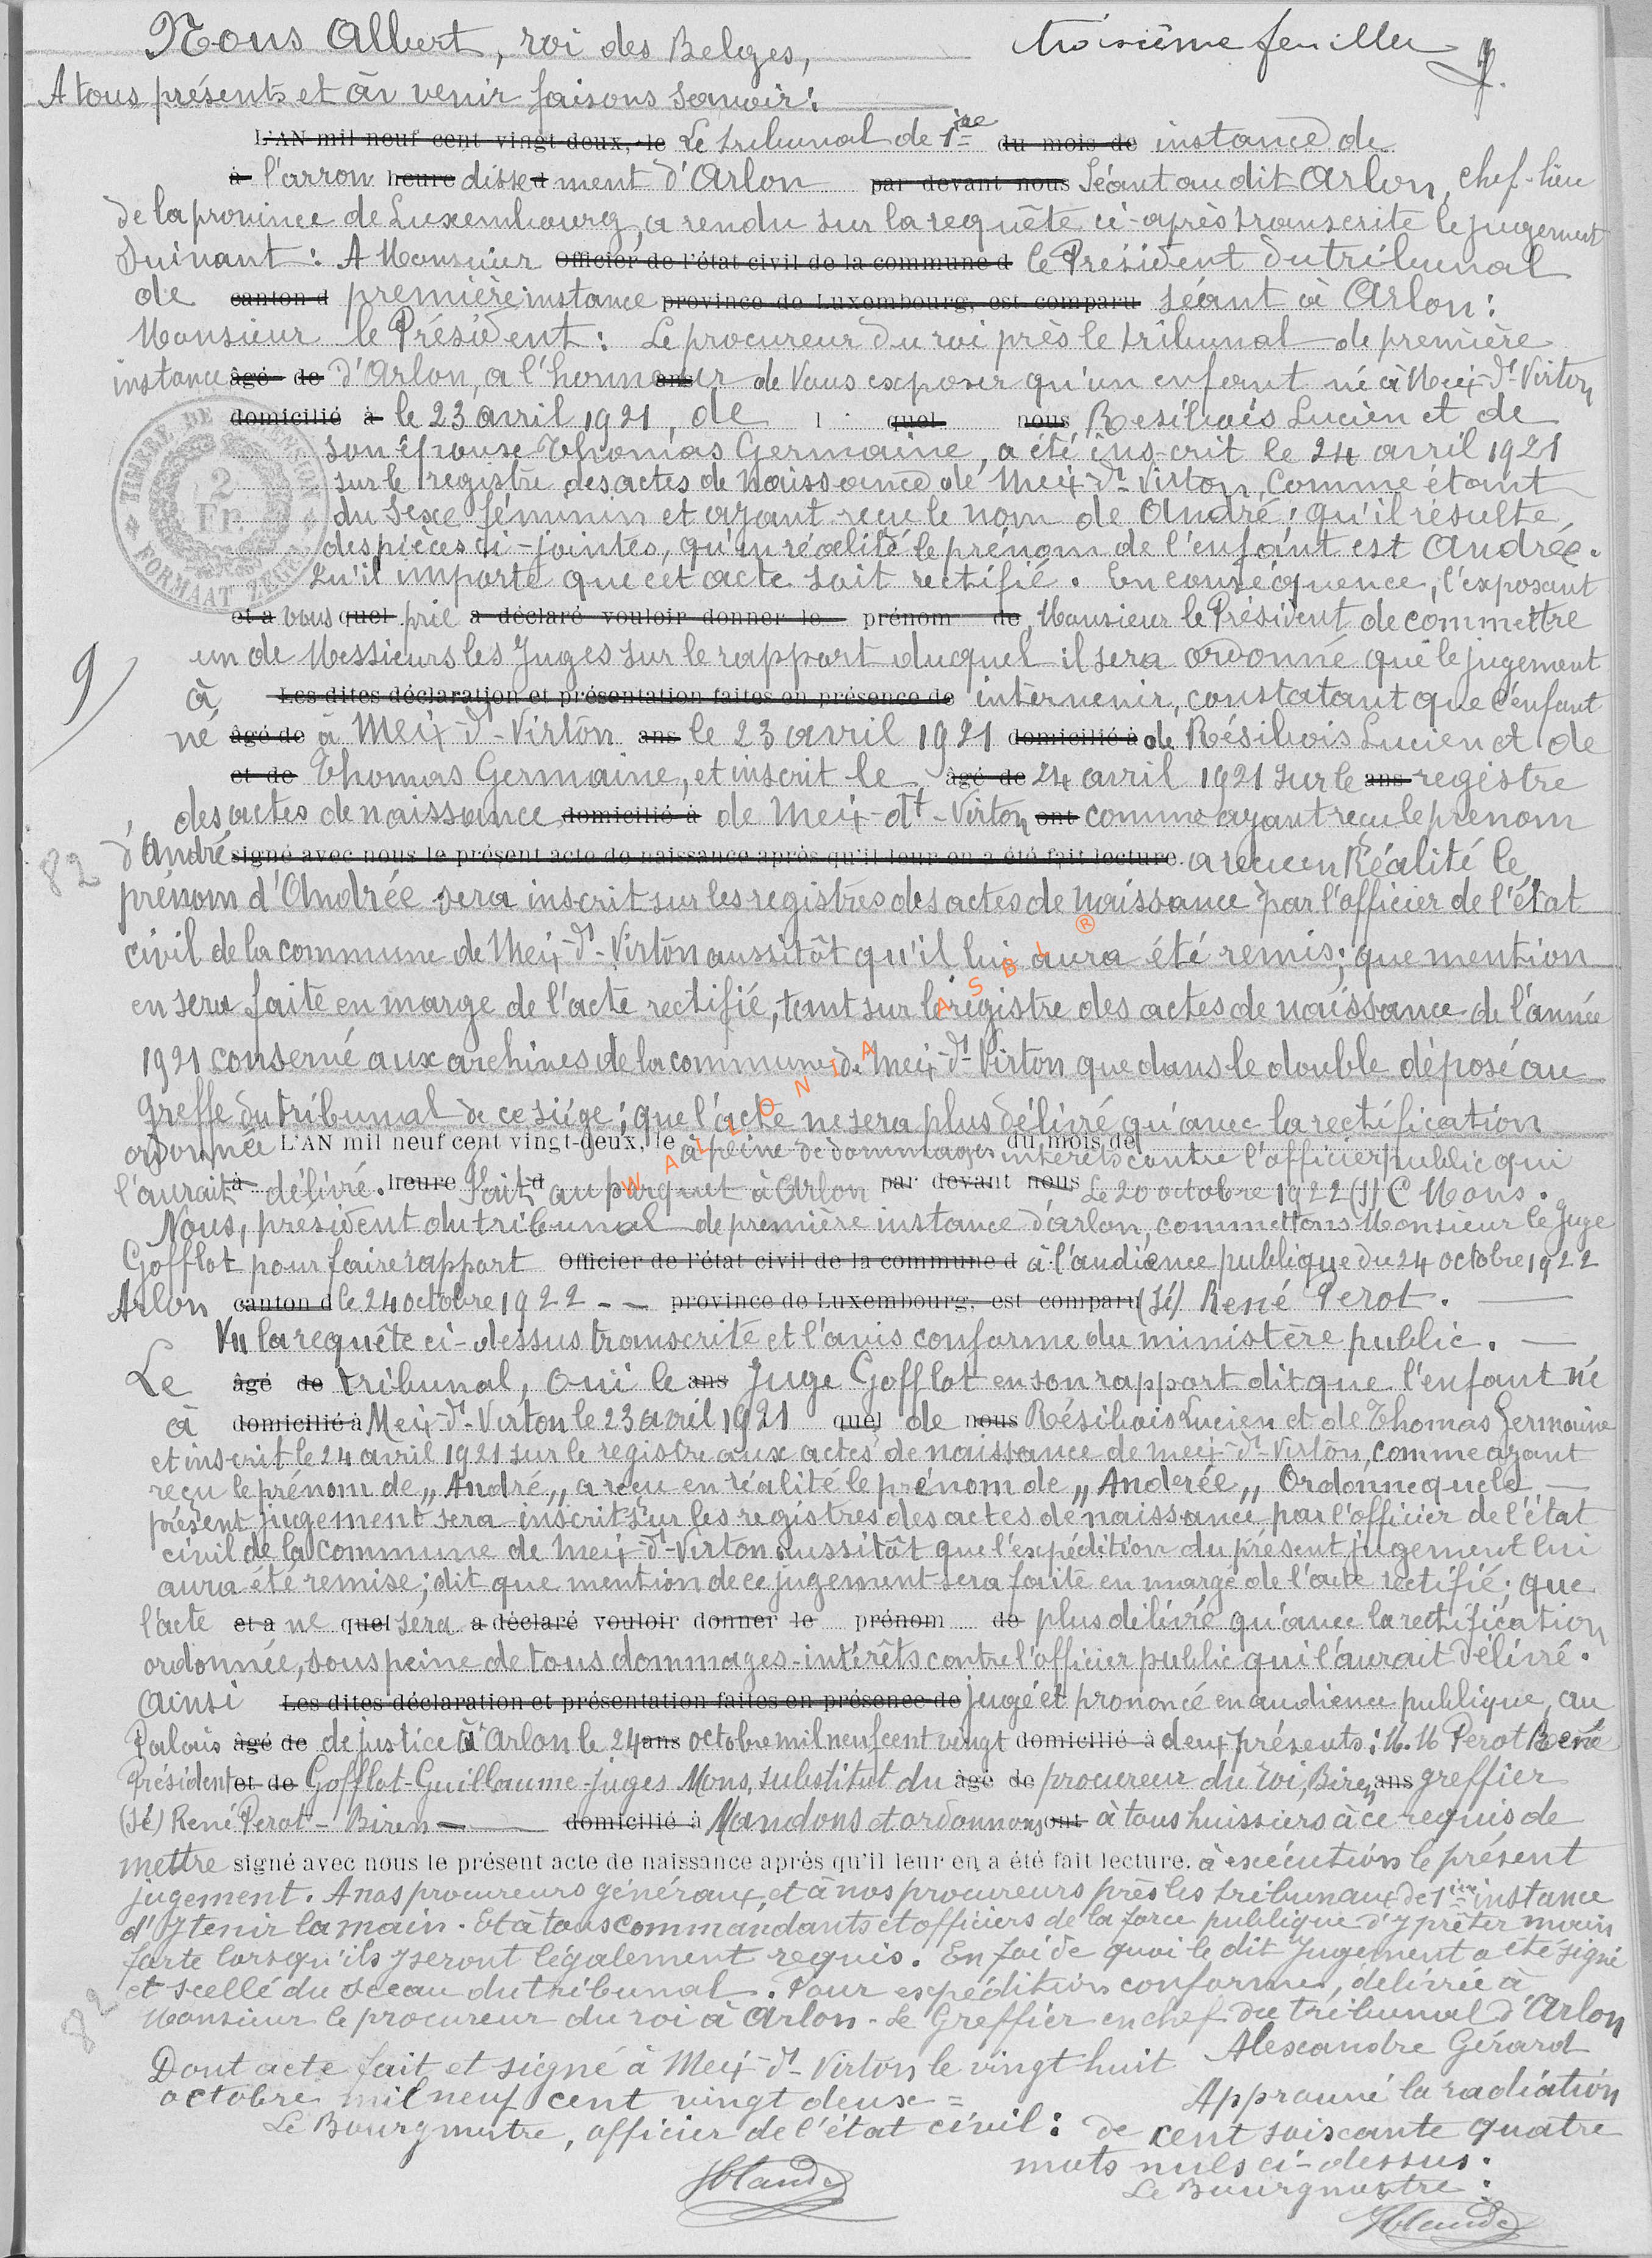 Nous Albert, roi des Belges, troisième feuillet
A tous présents et à venir faisons savoir:
L'AN mil neuf cent vingt-deux, le Le tribunal de 1ère du mois de instance de
à l'arron heure disse d ment d'Arlon par devant nous Séant au dit Arlon, chef-lieu
de la province de Luxembourg, a rendu sur la requête ci-après transcrite le jugement
Suivant: A Monsieur Officier de l'état civil de la commune d le Président du tribunal
de canton d première instance province de Luxembourg, est comparu séant à Arlon:
Monsieur le Président: Le procureur du roi près le tribunal de première
instance âgé de d'Arlon, a l'honneur ans de Vous exposer qu'un enfant né à Meix-dt-Virton
domicilié à le 23 avril 1921, de l quel nous Résibois Lucien et de
son épouse Thomas Germaine, a été ins-crit le 24 avril 1921
sur le registre des actes de Naissance de Meix-dt-Virton, comme étant
du sexe féminin et ayant reçu le nom de André; qu'il résulte
des pièces ci-jointes, qu'en réalité le prénom de l'enfant est Andrée.
Qu'il importe que cet acte soit rectifié. En conséquence, l'exposant
et a vous quel prie a déclaré vouloir donner le prénom de Monsieur le Président de commettre
un de Messieurs les Juges sur le rapport duquel il sera ordonné que le jugement
9/ à Les dites déclaration et présentation faites en présence de intervenir, constatant que l'enfant
né âgé de à Meix-dt-Virton ans le 23 avril 1921 domicilié à de Résibois Lucien et de
et de Thomas Germaine, et inscrit le âgé de 24 avril 1921 sur le ans registre
des actes de naissance domicilié à de Meix-dt-Virton ont comme ayant reçu le prénom
82 d'André signé avec nous le présent acte de naissance après qu'il leur en a été fait lecture. a reçu en Réalité le
prénom d'Andrée sera inscrit sur les registres des actes de naissance par l'officier de l'état
civil de la commune de Meix-dt-Virton aussitôt qu'il lui aura été remis; que mention
en sera faite en marge de l'acte rectifié, tant sur le registre des actes de naissance de l'année
1921 conservé aux archives de la commune de Meix-dt-Virton que dans le double déposé au
greffe du tribunal de ce siège; que l'acte ne sera plus délivré qu'avec la rectification
ordonnée L'AN mil neuf cent vingt-deux, le à peine de dommages du mois de intérêts contre l'officier public qui
l'aurait à délivré. heure Fait d au parquet à Arlon par devant nous Le 20 octobre 1922 (s) C Mons.
Nous, président du tribunal de première instance d'Arlon, commettons Monsieur le Juge
Gofflot pour faire rapport Officier de l'état civil de la commune d à l'audience publique du 24 octobre 1922
Arlon canton d le 24 octobre 1922 - - province de Luxembourg, est comparu (Sé) René Perot.
Vu la requête ci-dessus transcrite et l'avis conforme du ministère public.
Le âgé de tribunal, Oui le ans Juge Gofflot en son rapport dit que l'enfant né
à domicilié à Meix-dt-Virton le 23 avril 1921 quel de nous Résibois Lucien et de Thomas Germaine
et inscrit le 24 avril 1921 sur le registre aux actes de naissance de Meix-dt-Virton, comme ayant
reçu le prénom de „André„ a reçu en réalité le prénom de „Anderée„ Ordonne que le
présent jugement sera inscrit sur les registres des actes de naissance par l'officier de l'état
civil de la commune de Meix-dt-Virton aussitôt que l'expédition du présent jugement lui
aura été remise; dit que mention de ce jugement sera faite en marge de l'acte rectifié; que
l'acte et a ne quel sera a déclaré vouloir donner le prénom de plus délivré qu'avec la rectification
ordonnée, sous peine de tous dommages-intérêts contre l'officier public qui l'aurait délivré.
Ainsi Les dites déclaration et présentation faites en présence de jugé et prononcé en audience publique, au
Palais âgé de de justice à Arlon le 24 ans octobre mil neuf cent vingt domicilié à deux présents: M.M Perot René
Président et de Gofflot-Guillaume-juges Mons, substitut du âgé de procureur du roi, Biren ans greffier
(Sé) René Perot - Biren - domicilié à Mandons et ordonnons ont à tous huissiers à ce requis de
mettre signé avec nous le présent acte de naissance après qu'il leur en a été fait lecture. à exécution le présent
jugement. A nos procureurs généraux, et à nos procureurs près les tribunaux de 1ère instance
d'y tenir la main. Et à tous commandants et officiers de la force publique d'y prêter main
forte lorsqu'ils y seront légalement requis. En foi de quoi le dit Jugement a été signé
et scellé du sceau du tribunal. Pour expédition conforme, délivrée à
82 Monsieur le procureur du roi à Arlon. Le Greffier en chef du tribunal d'Arlon
Alexandre Gérard
Dont acte fait et signé à Meix-dt-Virton le vingt huit
octobre mil neuf cent vingt deux =
Le Bourgmestre, officier de l'état civil:
Approuvé la radiation
de cent soixante quatre
mots nuls ci-dessus.
Le Bourgmestre:
TIMBRE DE DIMENSION
2 Fr
FORMAAT ZEGEL
WALLONIA ASBL ®